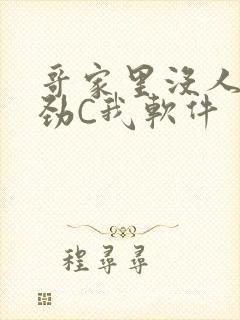 哥家里没人
劲C我软件
程寻寻